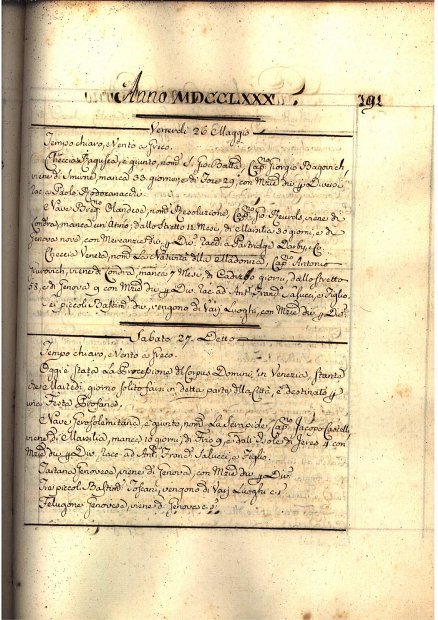 Anno MDCCLXXX. 191
Venerdì 26 Maggio
Tempo chiaro, e Vento a
Checcia Ragusea, è giunto, nomᵃ S. Gio: Batt Capⁿ Giorgio Bagovich,
viene di Smirne, manca 33 giorni, e di 29, con Mrzie div
rac a Paolo
Nave Olandese, nomᵃ Resoluzione, Capⁿ Gio viene di
Londra, manca un Anno, dallo Stretto 11 Mesi, di Marsilia 30 giorni, e di
Genova nove con Mercanzie div p Div racᵈ a Partridge Darby, e Cᵒ
Checcia Veneta, nomᵃ La Natività della Madonna, Capⁿ Antonio
viene di Londra, manca 7 Mesi, di giorni, dallo Stretto
58, e di Genova 9 con Mrzie div p Div rac ad Antᵒ Francᵒ Salucci, e Figlio.
Sei piccoli Bastimᵗⁱ div, vengono da Varj Luoghi, con Mrzie div p Div
Sabato 27 Detto
Tempo chiaro, e Vento a
Oggi è stata La Processione del Corpus Domini in Venezia, stante
Martedì, giorno solito farsi in detta parte della Città, è destinato p
Festa Profana.
Nave Gerosolimitana, è giunto, nomᵃ La Serapide, Capⁿ Jacopo Castelli
viene di Marsilia, manca 10 giorni, di 9, e dall' Isole di Jeres 4 con
Mrzie div p Div, rac ad Antᵒ Francᵒ Salucci, e Figlio.
Genovese, viene di Genova, con Mrzie div p Div
Tre piccoli Bastimᵗⁱ Toscani, vengono di Varj Luoghi
Felugone Genovese, viene di Genova